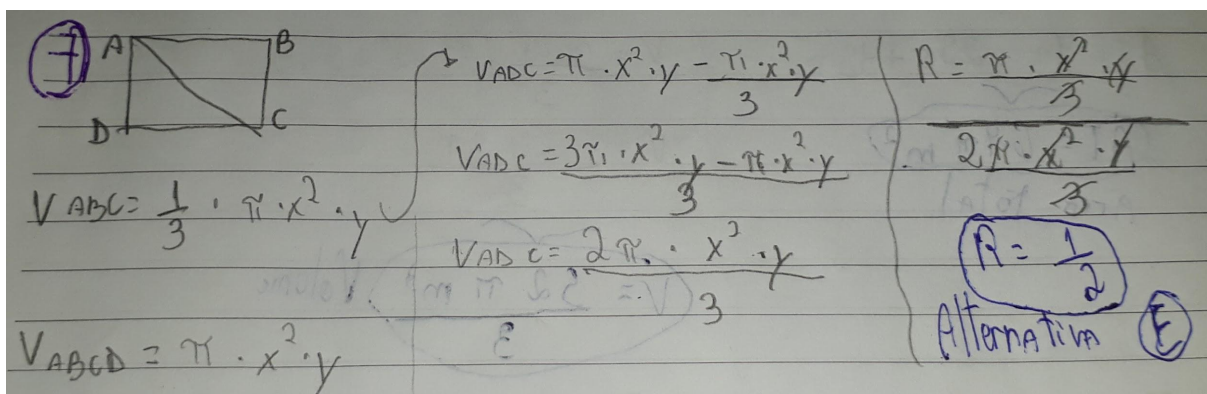 7
A B
D C
V ABC = 1/3 · π · x² · y
V ABCD = π · x² · y
V ADC = π · x² · y - π · x² · y / 3
V ADC = 3π · x² · y - π · x² · y / 3
V ADC = 2π · x² · y / 3
R = π · x² · y / 3
2π · x² · y / 3
R = 1/2
Alternativa E